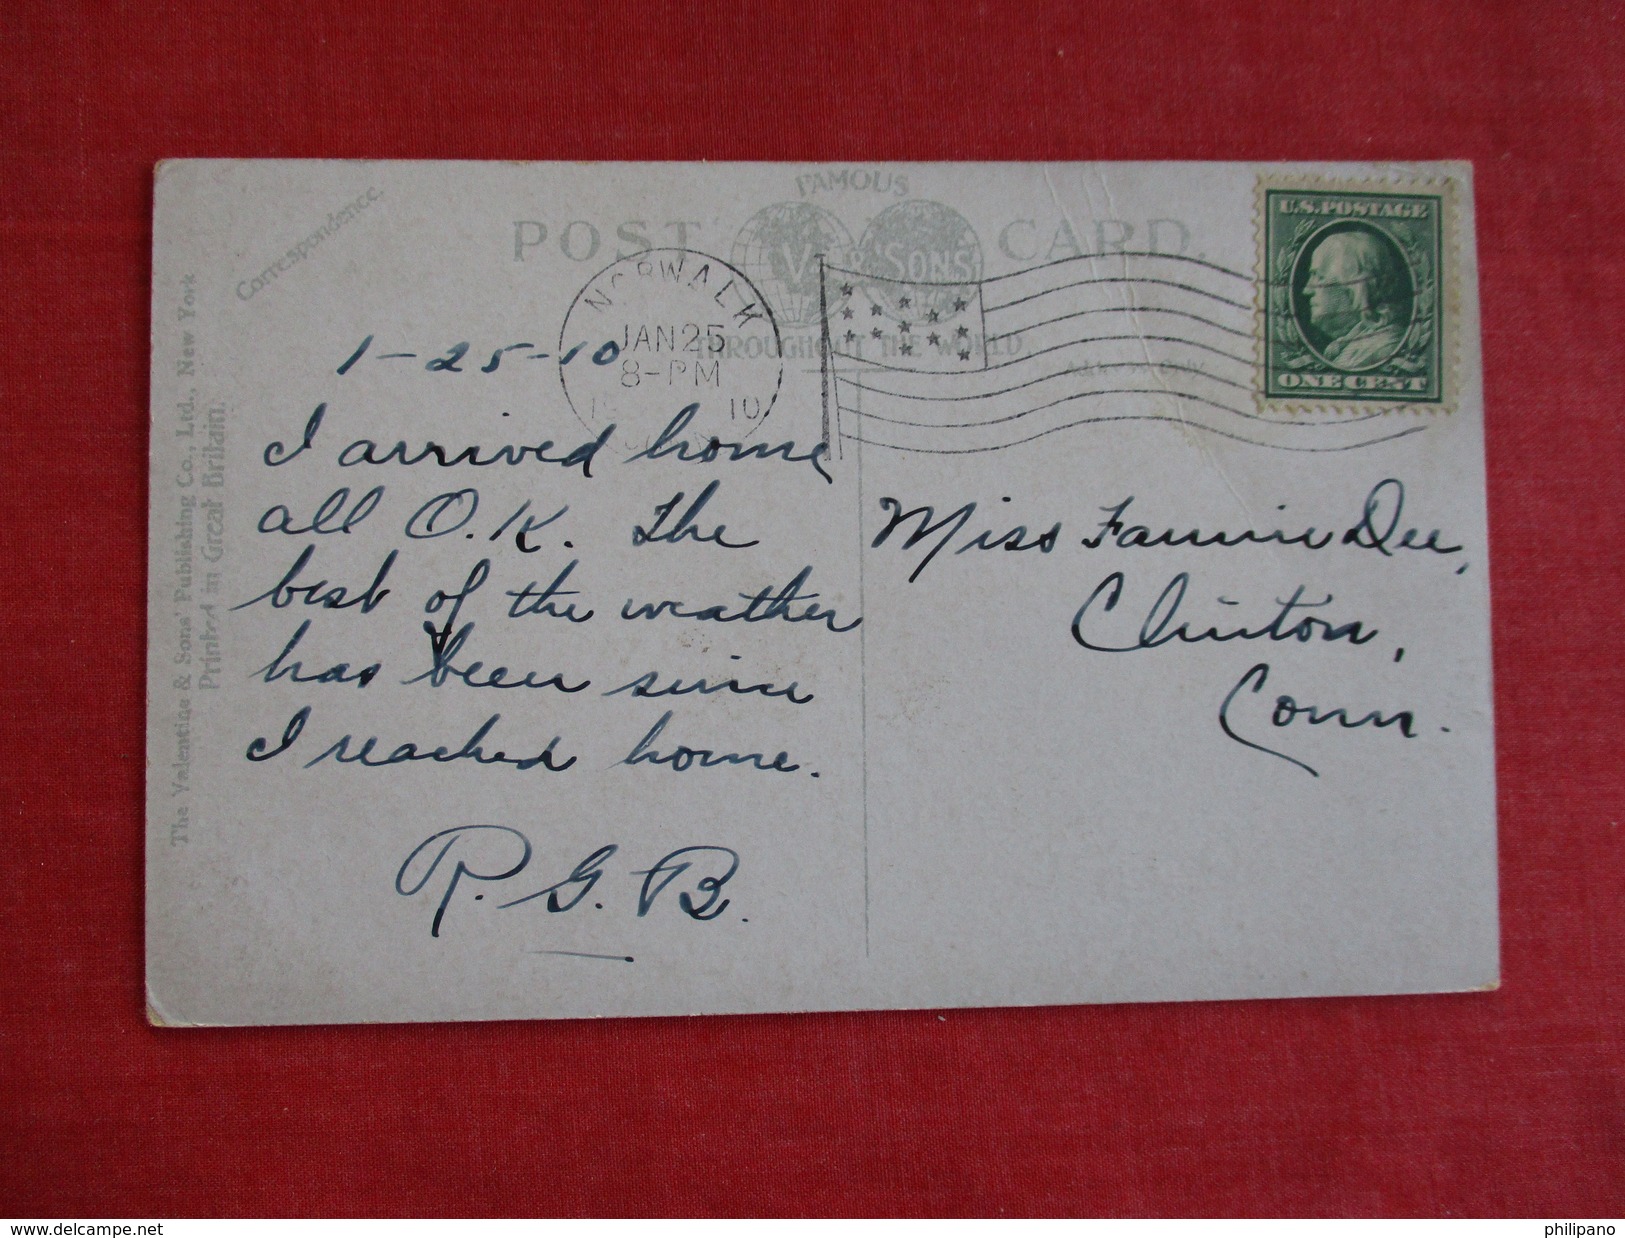 Correspondence.
FAMOUS
POST CARD.
V. & SONS
THROUGHOUT THE WORLD
Address Only
U.S. POSTAGE
ONE CENT
NORWALK
JAN 25
8-PM
10
1-25-10
I arrived home
all O.K. The
best of the weather
has been since
I reached home.
R.G.B.
Miss Fannie Dee,
Clinton,
Conn.
The Valentine & Sons' Publishing Co., Ltd., New York
Printed in Great Britain.
delcampe.net
philipano